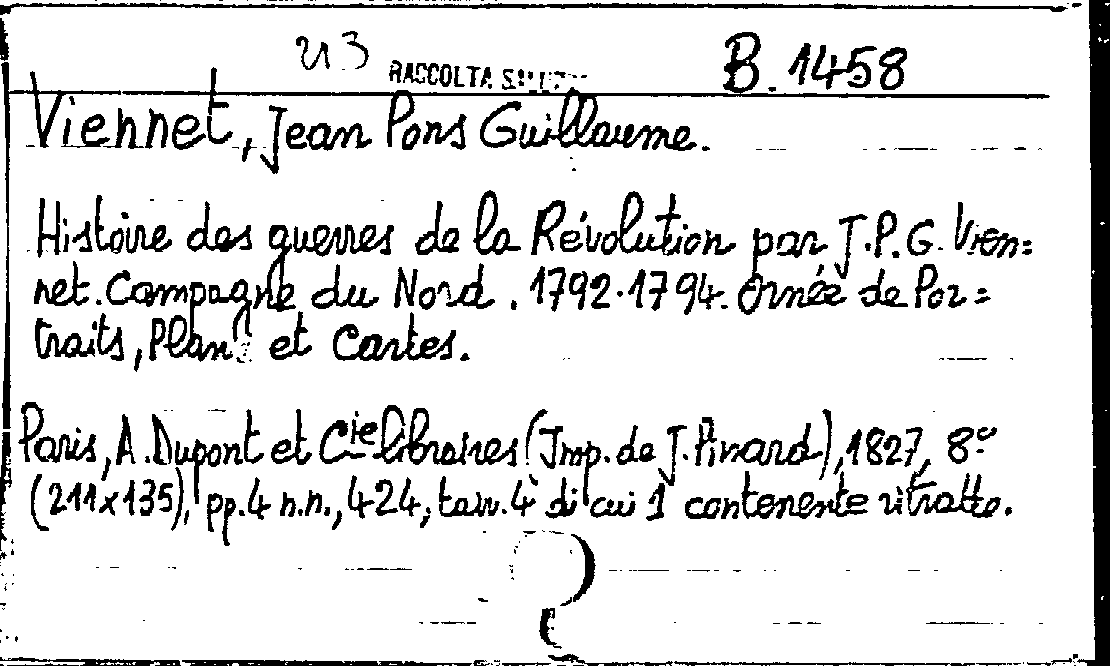 U3 RACCOLTA B. 1458
Viennet, Jean Pons Guillaume.
Histoire des guerres de la Révolution par J.P.G. Vien=
net. Campagne du Nord. 1792-1794. Ornée de Por=
traits, Plans et Cartes.
Paris, A. Dupont et Cie libraires (Imp. de J. Pinard), 1827, 8º
(211x135), pp. 4 n.n., 424, tav. 4 di cui 1 contenente ritratto.